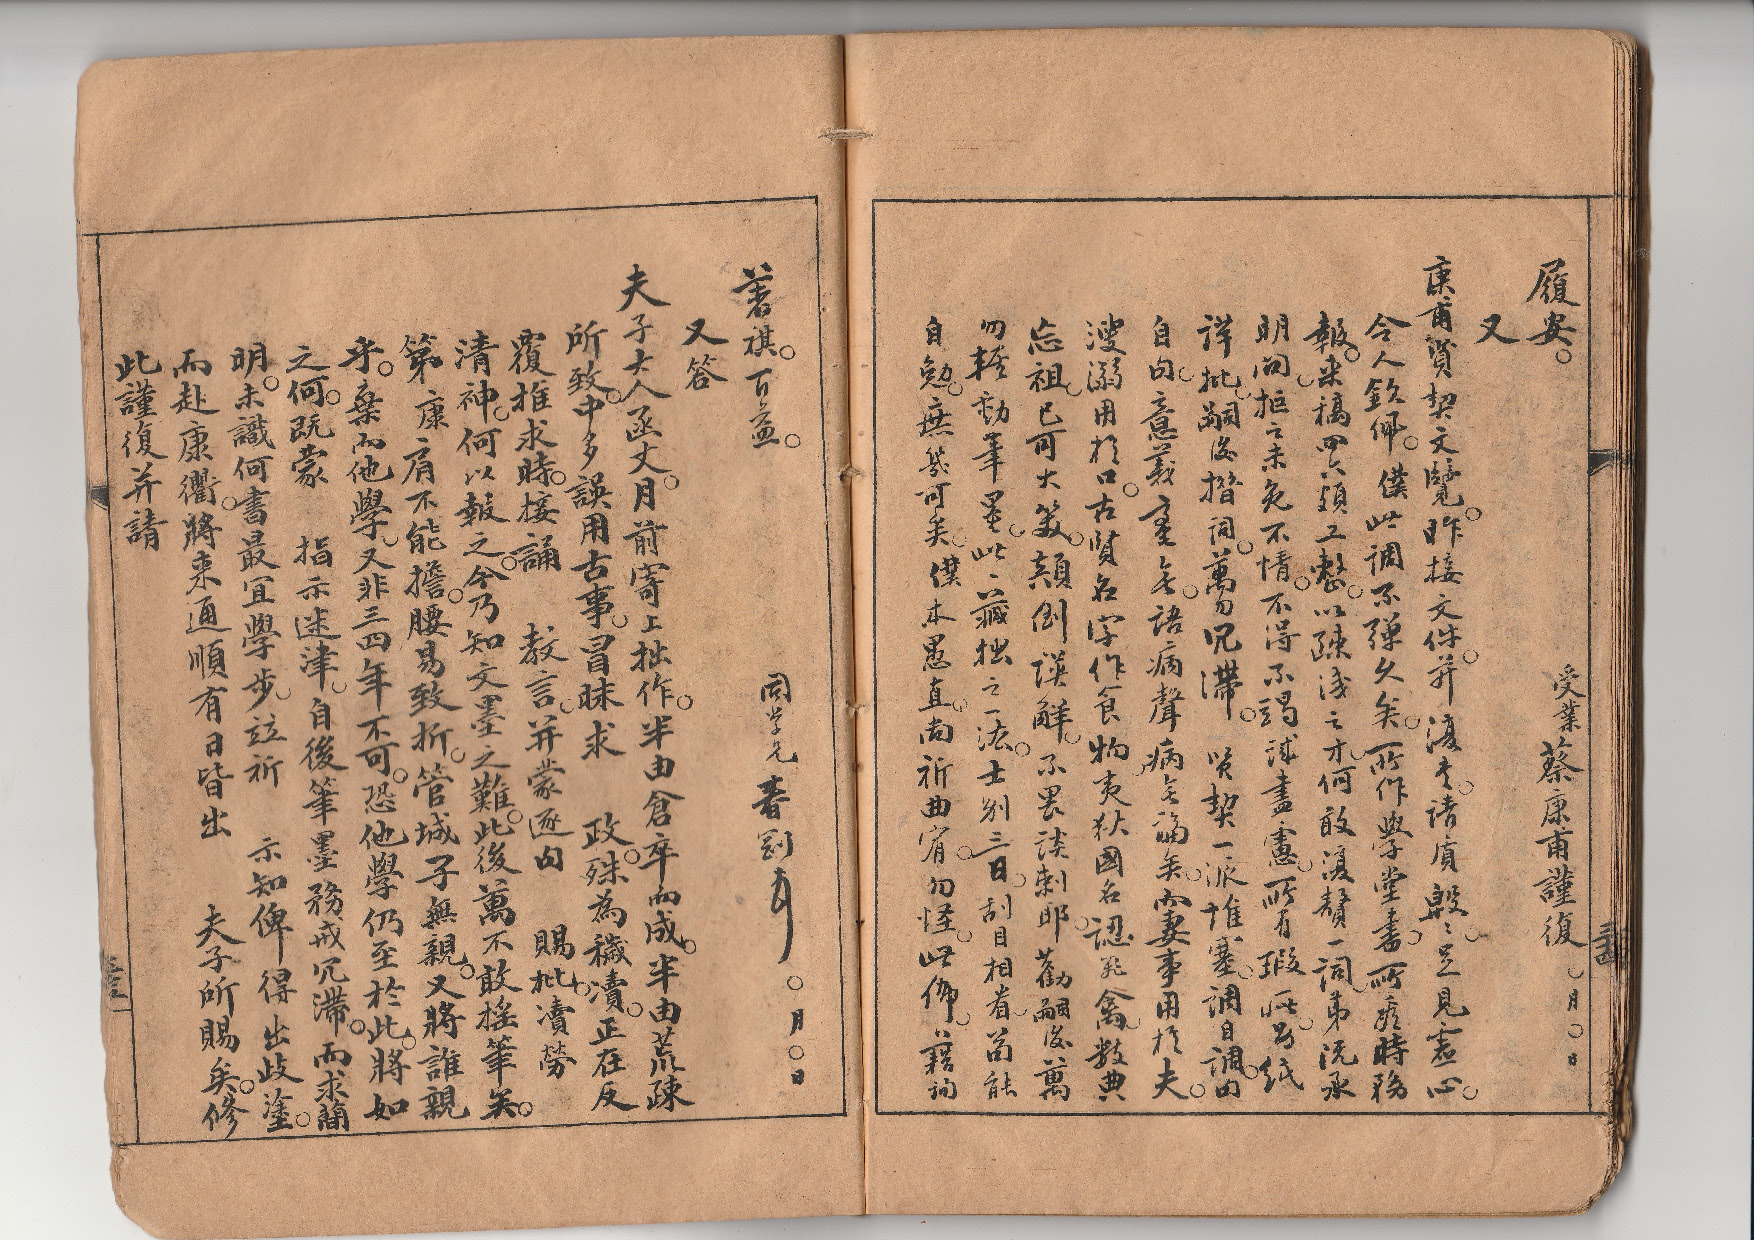 履安。
受業蔡康甫謹復 月〇日
又
康甫賢契文覽。昨接文件。并復書請質。殷殷足見虛心。
令人欽佩。僕此調不彈久矣。所作學堂書。所爲時務
報。來稿四六頗工整。以疎淺之才。何敢復贅一詞。弟既承
明問。拒之未免不情。不得不竭誠盡慮。所有瑕疵。另紙
詳批。嗣後措詞。萬勿冗滯。賢契一派堆塞。調自調。句
自句。意義重重。語病聲病無論矣。而妻事用於夫。
溲溺用於口。古賢名字作食物。夷狄國名認飛禽。數典
忘祖。已可大笑。顛倒誤解。不畏談刺耶。勸嗣後萬
勿輕動筆墨。此藏拙之一法。士別三日。刮目相看。苟能
自勉。庶幾可矣。僕本愚直。尚祈曲宥。勿怪。此佈。藉詢
著祺。百益。
同學兄 春 〇月〇日
又答
夫子大人函丈。月前寄上拙作。半由倉卒而成。半由荒疎
所致。中多誤用古事。冒昧求 政。殊為穢瀆。正在反
覆推求時。接誦 教言。并蒙逐句 賜批。瀆勞
清神。何以報之。今乃知文墨之難。此後萬不敢搖筆矣。
第康肩不能擔。腰易致折。管城子無親。又將誰親
乎。棄而他學。又非三四年不可。恐他學仍至於此。將如
之何。既蒙 指示迷津。自後筆墨務戒冗滯。而求簡
明。未識何書最宜學步。竝祈 示知。俾得出歧塗。
而赴康衢。將來通順有日。皆出 夫子所賜矣。修
此謹復并請